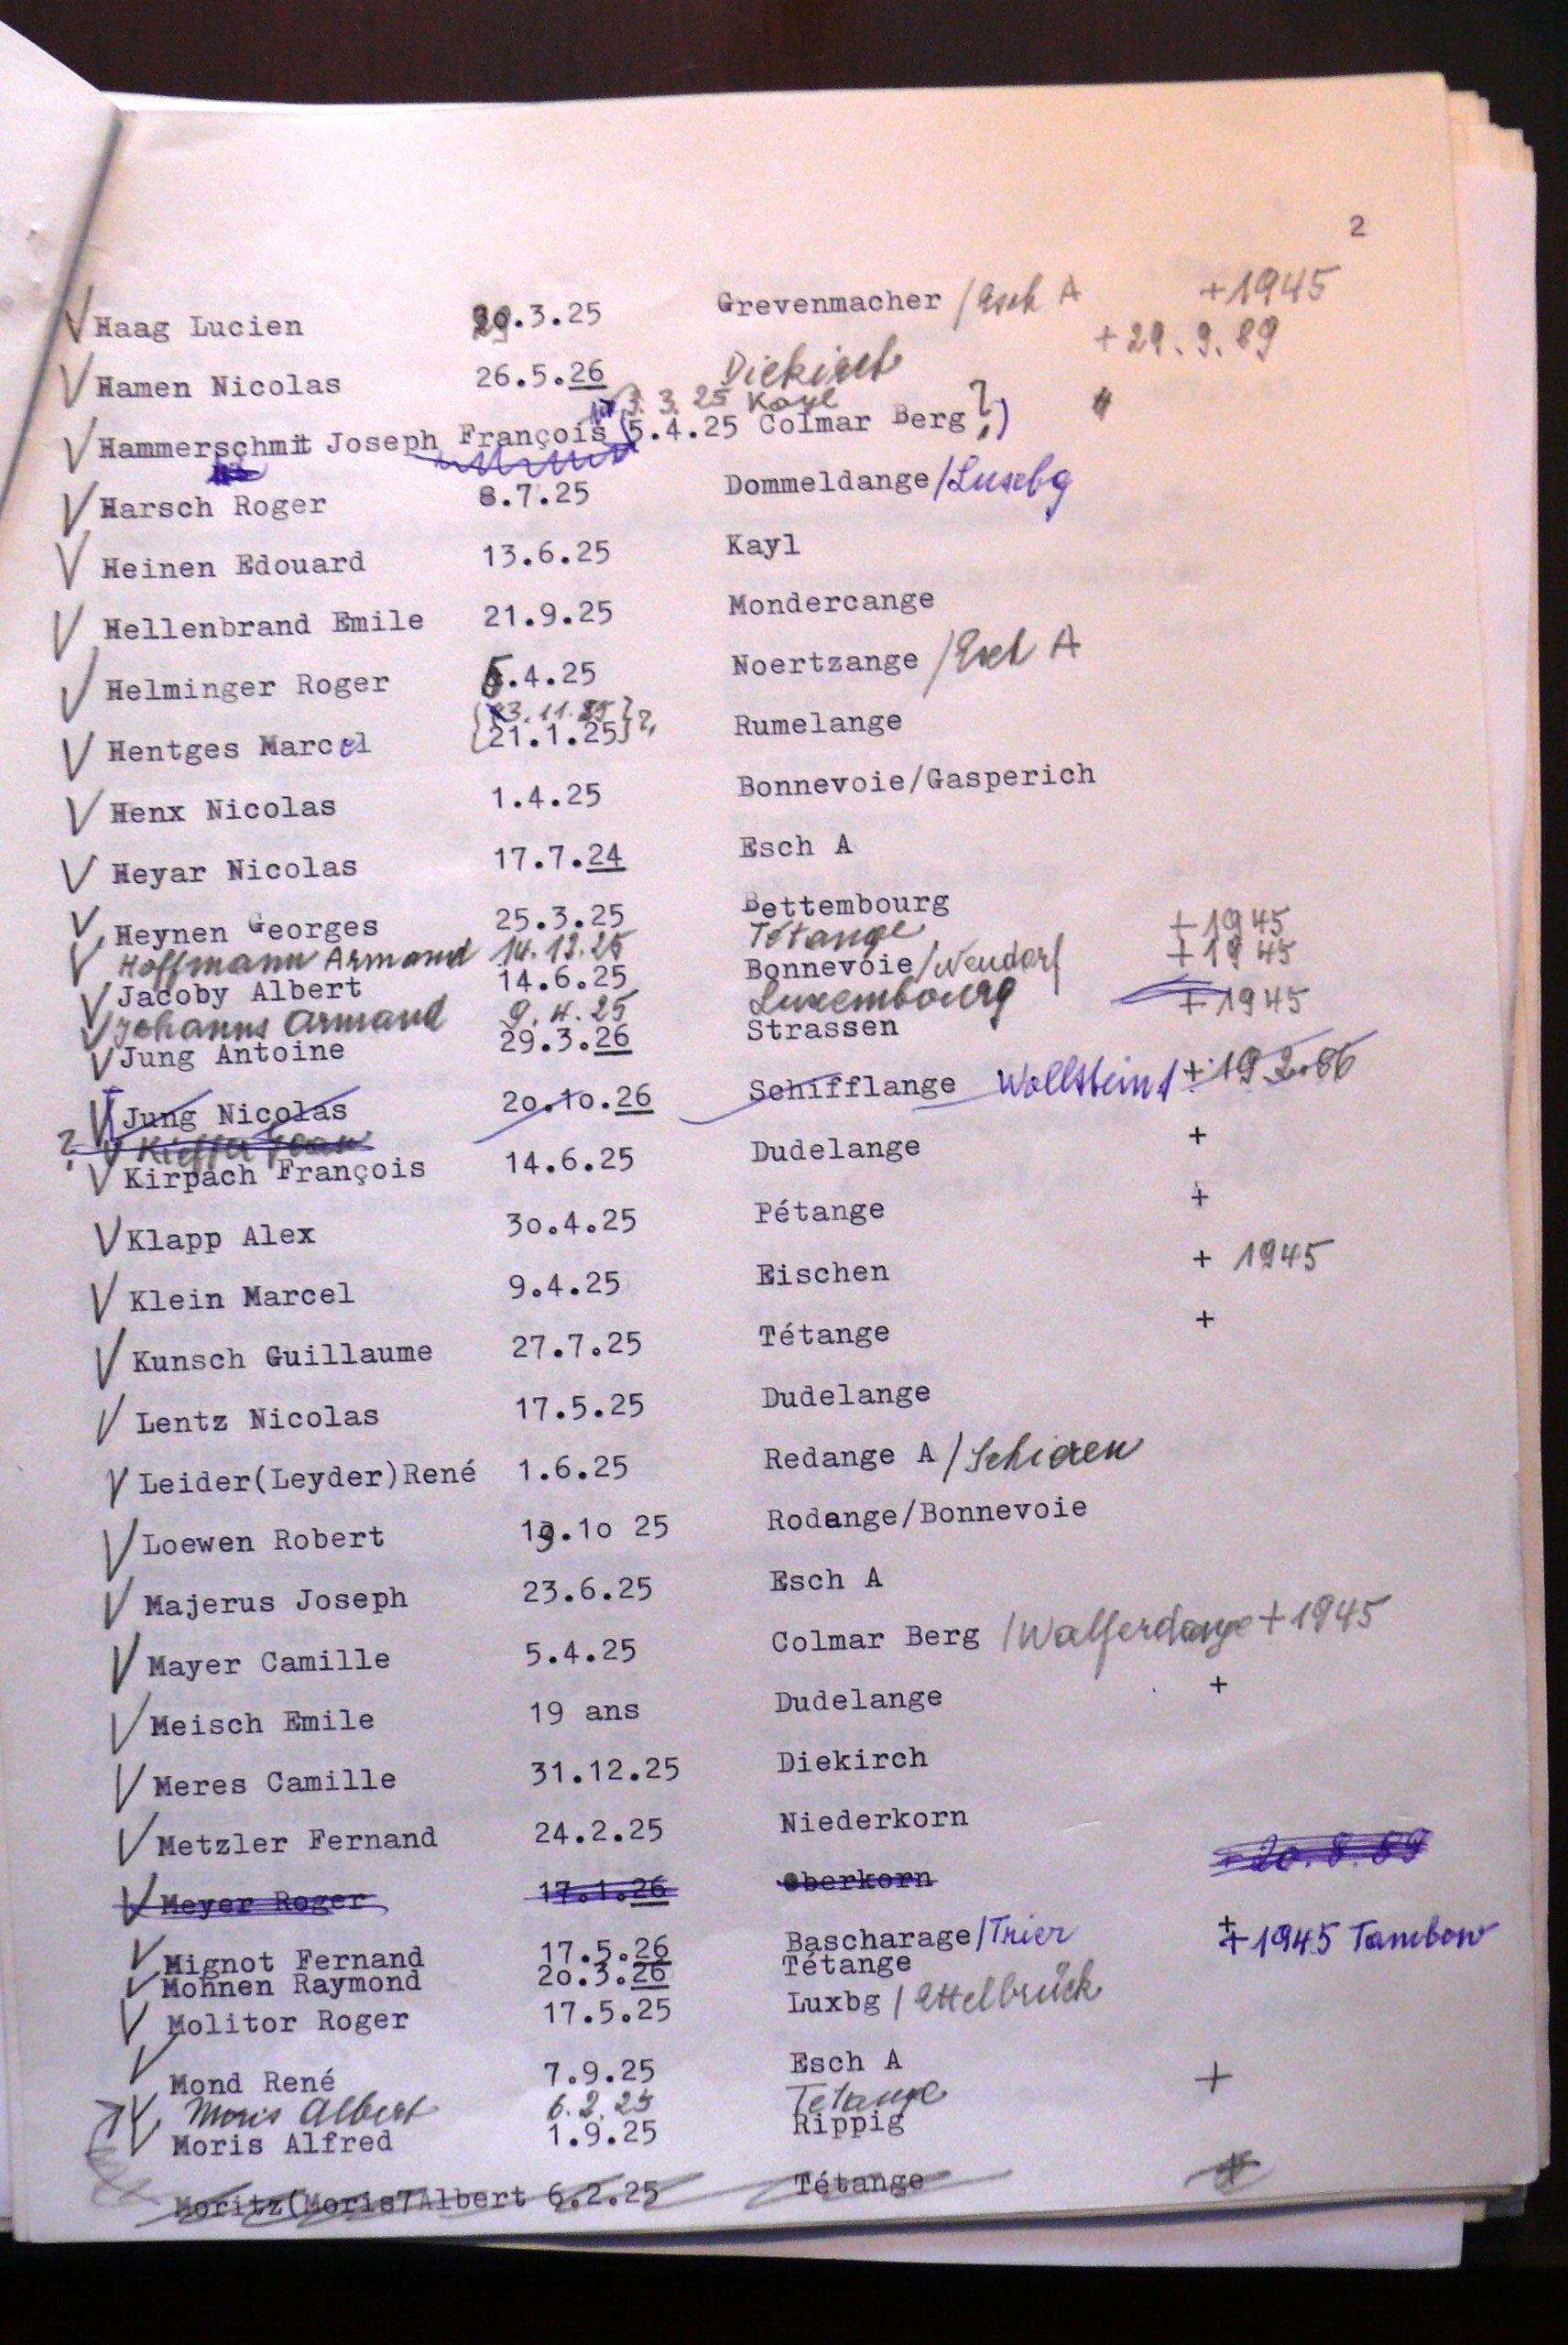 2
Haag Lucien .3.25 Grevenmacher /Esch A +1945
Hamen Nicolas 26.5.26 Diekirch +29.9.89
3.3.25 Kayl
Hammerschmit Joseph François (5.4.25 Colmar Berg ?)
Harsch Roger 8.7.25 Dommeldange/Luxbg
Heinen Edouard 13.6.25 Kayl
Hellenbrand Emile 21.9.25 Mondercange
Helminger Roger 5.4.25 Noertzange /Esch A
23.11.25
Hentges Marcel 21.1.25 ? Rumelange
Henx Nicolas 1.4.25 Bonnevoie/Gasperich
Heyar Nicolas 17.7.24 Esch A
Heynen Georges 25.3.25 Bettembourg
Hoffmann Armand 14.12.25 Tétange +1945
Jacoby Albert 14.6.25 Bonnevoie/Neudorf +1945
Johanns Armand 9.4.25 Luxembourg +1945
Jung Antoine 29.3.26 Strassen
Jung Nicolas 20.10.26 Schifflange Wollstein + 19 2.86
? Kieffer Jean
Kirpach François 14.6.25 Dudelange +
Klapp Alex 30.4.25 Pétange +
Klein Marcel 9.4.25 Eischen + 1945
Kunsch Guillaume 27.7.25 Tétange +
Lentz Nicolas 17.5.25 Dudelange
Leider(Leyder)René 1.6.25 Redange A/Schieren
Loewen Robert 19.10 25 Rodange/Bonnevoie
Majerus Joseph 23.6.25 Esch A
Mayer Camille 5.4.25 Colmar Berg /Walferdange +1945
Meisch Emile 19 ans Dudelange +
Meres Camille 31.12.25 Diekirch
Metzler Fernand 24.2.25 Niederkorn
Meyer Roger 17.1.26 Oberkorn +20.8.89
Mignot Fernand 17.5.26 Bascharage/Trier + +1945 Tambow
Mohnen Raymond 20.3.26 Tétange
Molitor Roger 17.5.25 Luxbg /Ettelbrück
Mond René 7.9.25 Esch A +
Moris Albert 6.2.25 Tétange
Moris Alfred 1.9.25 Rippig
Moritz(Moris?Albert 6.2.25 Tétange +